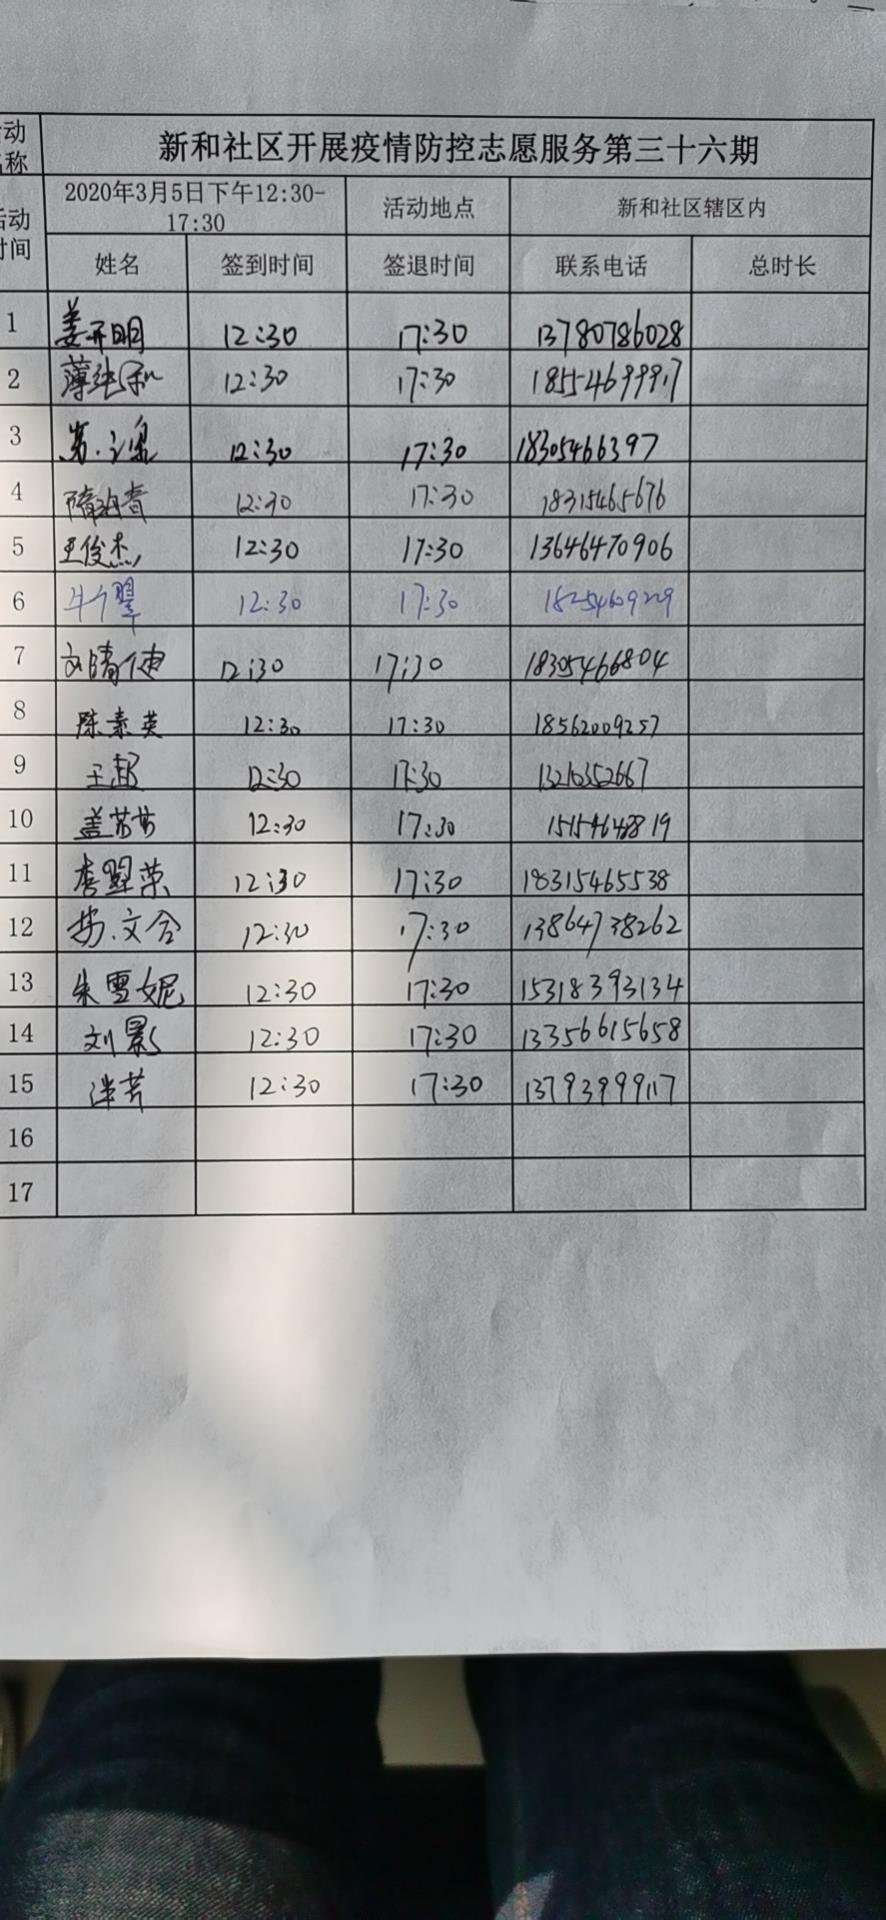 动
名称
新和社区开展疫情防控志愿服务第三十六期
活动
时间
2020年3月5日下午12:30-
17:30
活动地点
新和社区辖区内
姓名 签到时间 签退时间 联系电话 总时长
1 姜开明 12:30 17:30 13780786028
2 薄纯和 12:30 17:30 18554699917
3 12:30 17:30 18305466397
4 12:30 17:30 18315465676
5 王俊杰 12:30 17:30 13646470906
6 12:30 17:30 18254609229
7 12:30 17:30 18305466804
8 陈素英 12:30 17:30 18562009257
9 王超 12:30 17:30 13210352667
10 盖芳芳 12:30 17:30
11 李翠荣 12:30 17:30 18315465538
12 12:30 17:30 13864738262
13 朱雪妮 12:30 17:30 15318393134
14 刘影 12:30 17:30 13356615658
15 12:30 17:30 13793999117
16
17